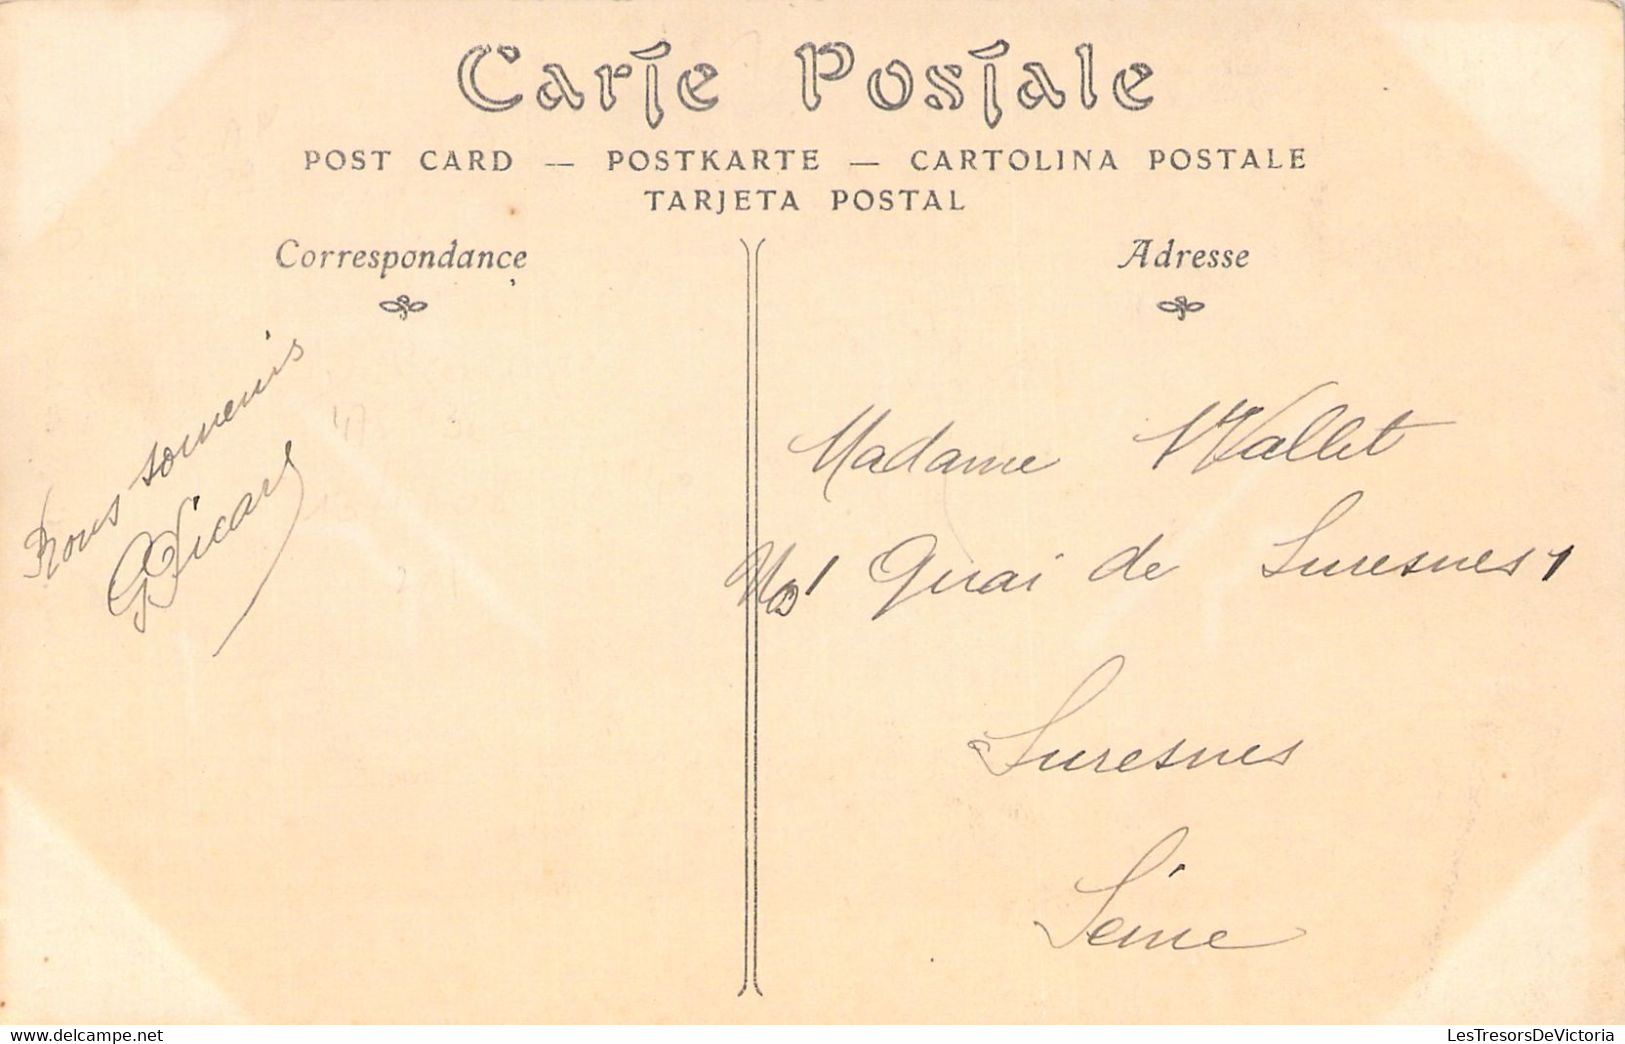 Carte Postale
POST CARD — POSTKARTE — CARTOLINA POSTALE
TARJETA POSTAL
Correspondance
Adresse
Bons souvenirs
G Picard
Madame Vallet
No 1 Quai de Suresnes 1
Suresnes
Seine
www.delcampe.net
LesTresorsDeVictoria